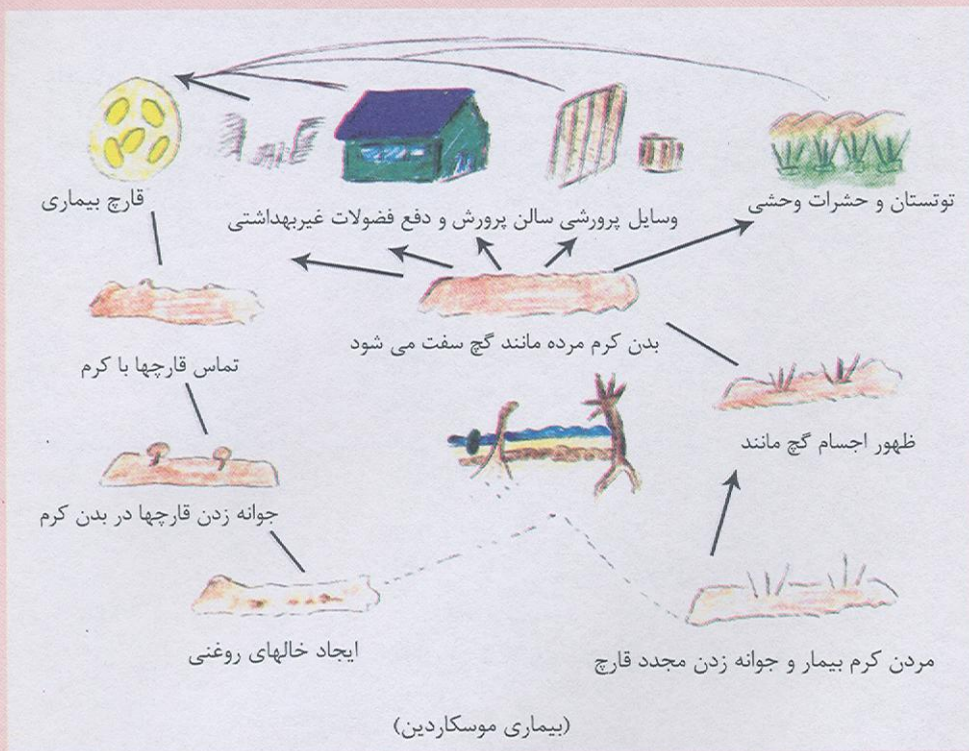 قارچ بیماری
توتستان و حشرات وحشی
وسایل پرورشی سالن پرورش و دفع فضولات غیربهداشتی
بدن کرم مرده مانند گچ سفت می شود
تماس قارچها با کرم
ظهور اجسام گچ مانند
جوانه زدن قارچها در بدن کرم
ایجاد خالهای روغنی
مردن کرم بیمار و جوانه زدن مجدد قارچ
(بیماری موسکاردین)